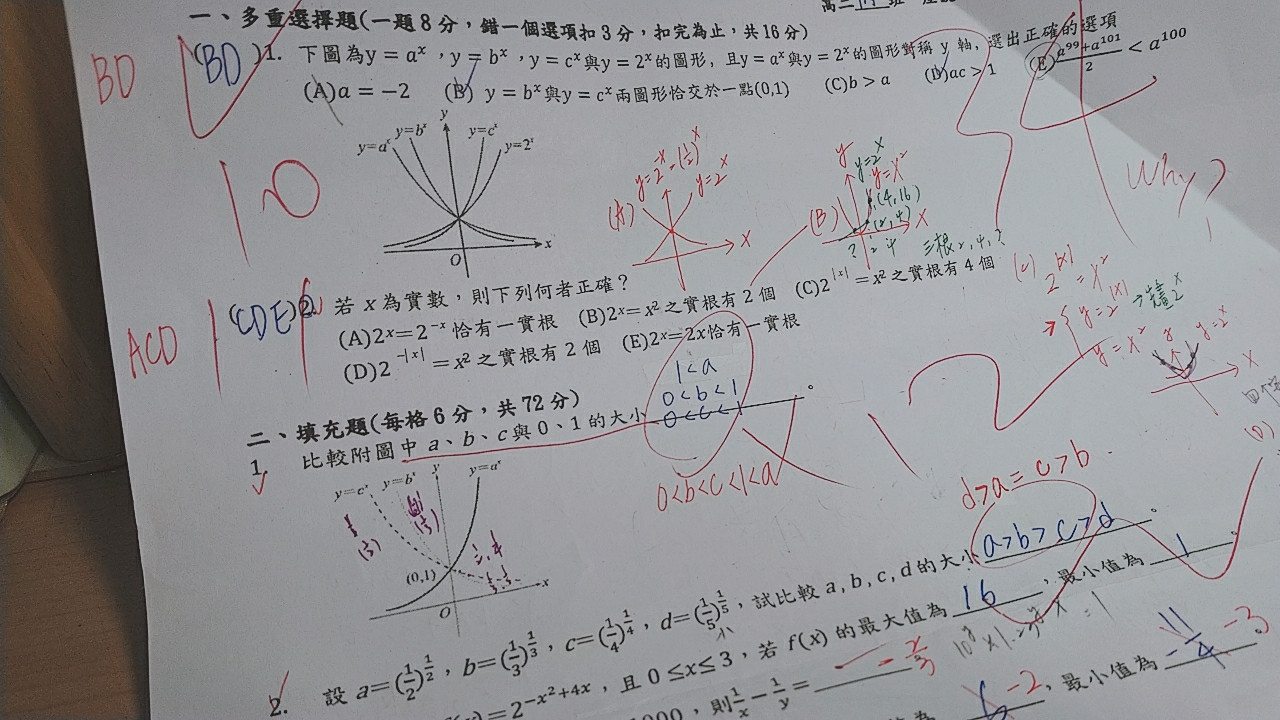 一、多重選擇題(一題8分，錯一個選項扣3分，扣完為止，共16分)
BD
(BD)1. 下圖為y = aˣ，y = bˣ，y = cˣ與y = 2ˣ的圖形，且y = aˣ與y = 2ˣ的圖形對稱 y 軸，選出正確的選項
(A)a = −2 (B) y = bˣ與y = cˣ兩圖形恰交於一點(0,1) (C)b > a (D)ac > 1 (E)(a⁹⁹+a¹⁰¹)/2 < a¹⁰⁰
y=aˣ y=bˣ y y=cˣ y=2ˣ
x
O
10
(A) y=2⁻ˣ=(1/2)ˣ y=2ˣ
X
(B) y y=2ˣ
y=x²
(4,16)
(2,4) X
? 2 4
三根2,4,?
Why?
ACD
(CDE)2. 若 x 為實數，則下列何者正確？
(A)2ˣ=2⁻ˣ 恰有一實根 (B)2ˣ= x² 之實根有 2 個 (C)2^|x| = x² 之實根有 4 個
(D)2^−|x| = x² 之實根有 2 個 (E)2ˣ=2x恰有一實根
(c) 2^|x| = x²
y=2^|x|
y=x²
y=2ˣ
X
(D)
二、填充題(每格 6 分，共 72 分)
1. 比較附圖中 a、b、c與 0、1 的大小
1<a
0<b<1
0<c<1
。
0<b<c<1<a
y=cˣ y=bˣ y y=aˣ
(0,1)
x
O
d>a=c>b
2. 設 a=(1/2)^(1/2)，b=(1/3)^(1/3)，c=(1/4)^(1/4)，d=(1/5)^(1/5)，試比較 a, b, c, d 的大小 a>b>c>d 。
=2^(−x²+4x)，且 0 ≤x≤ 3，若 f(x) 的最大值為 16，最小值為 1 。
000，則1/x − 1/y =
-2，最小值為 -11/4 -3 。